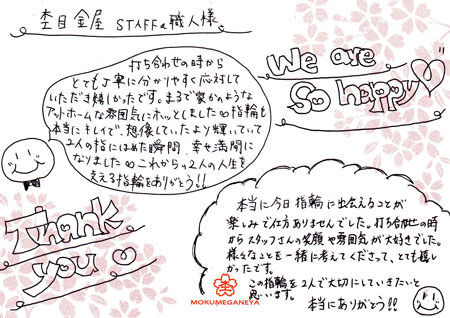 杢目金屋 STAFF & 職人様
打ち合わせの時から
とても丁寧に分かりやすく応対して
いただき嬉しかったです。まるで家かのような
アットホームな雰囲気にホッとしました∞指輪も
本当にキレイで、想像していたより輝いていて
2人の指にはめた瞬間、幸せ満開に
なりました∞これからの2人の人生を
支える指輪をありがとう!!
We are
So happy
Thank
you
本当に今日指輪に出会えることが
楽しみで仕方ありませんでした。打ち合せの時
からスタッフさんの笑顔や雰囲気が大好きでした。
様々なことを一緒に考えてくださって、とても嬉し
かったです。
この指輪を2人で大切にしていきたいと
思います。
本当にありがとう!!
MOKUMEGANEYA